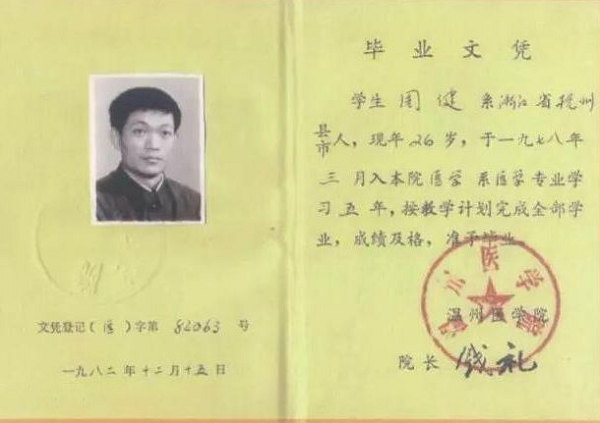 文凭登记(医)字第 82063 号
一九八二年十二月十五日
毕业文凭
学生 周健 系浙江省杭州
县
市人,现年26岁,于一九七八年
三月入本院医学系医学专业学
习五年,按教学计划完成全部学
业,成绩及格,准予毕业。
温州医学院
院长 钱礼
温州医学院